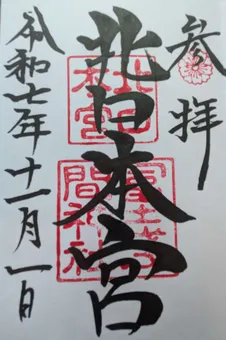 参拝
北口本宮
冨士浅
間神社
令和七年十一月一日